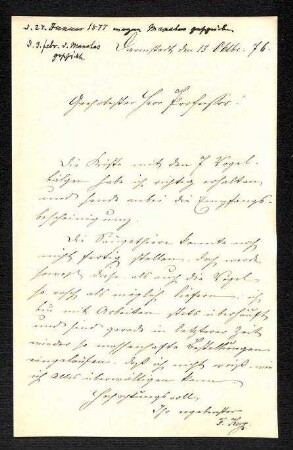 d. 27. Januar 1877 wegen Manatus geschrieb.
d. 9. febr. d. Manatus geschickt
Darmstadt, den 13 Oktbr. 76.
Geehrtester Herr Professor!
Die Kiste mit den 7 Vogel-
bälgen habe ich richtig erhalten
und sende anbei die Empfangs-
bescheinigung.
Die Säugethiere konnte noch
nicht fertig stellen. Doch werde
sowohl diese als auch die Vögel
so rasch als möglich liefern, ich
bin mit Arbeiten stets überhäuft
und sind gerade in letzterer Zeit
wieder so massenhafte Bestellungen
eingelaufen, daß ich nicht weiß, wie
ich Alles überwältigen kann
Hochachtungsvoll
Ihr ergebenster